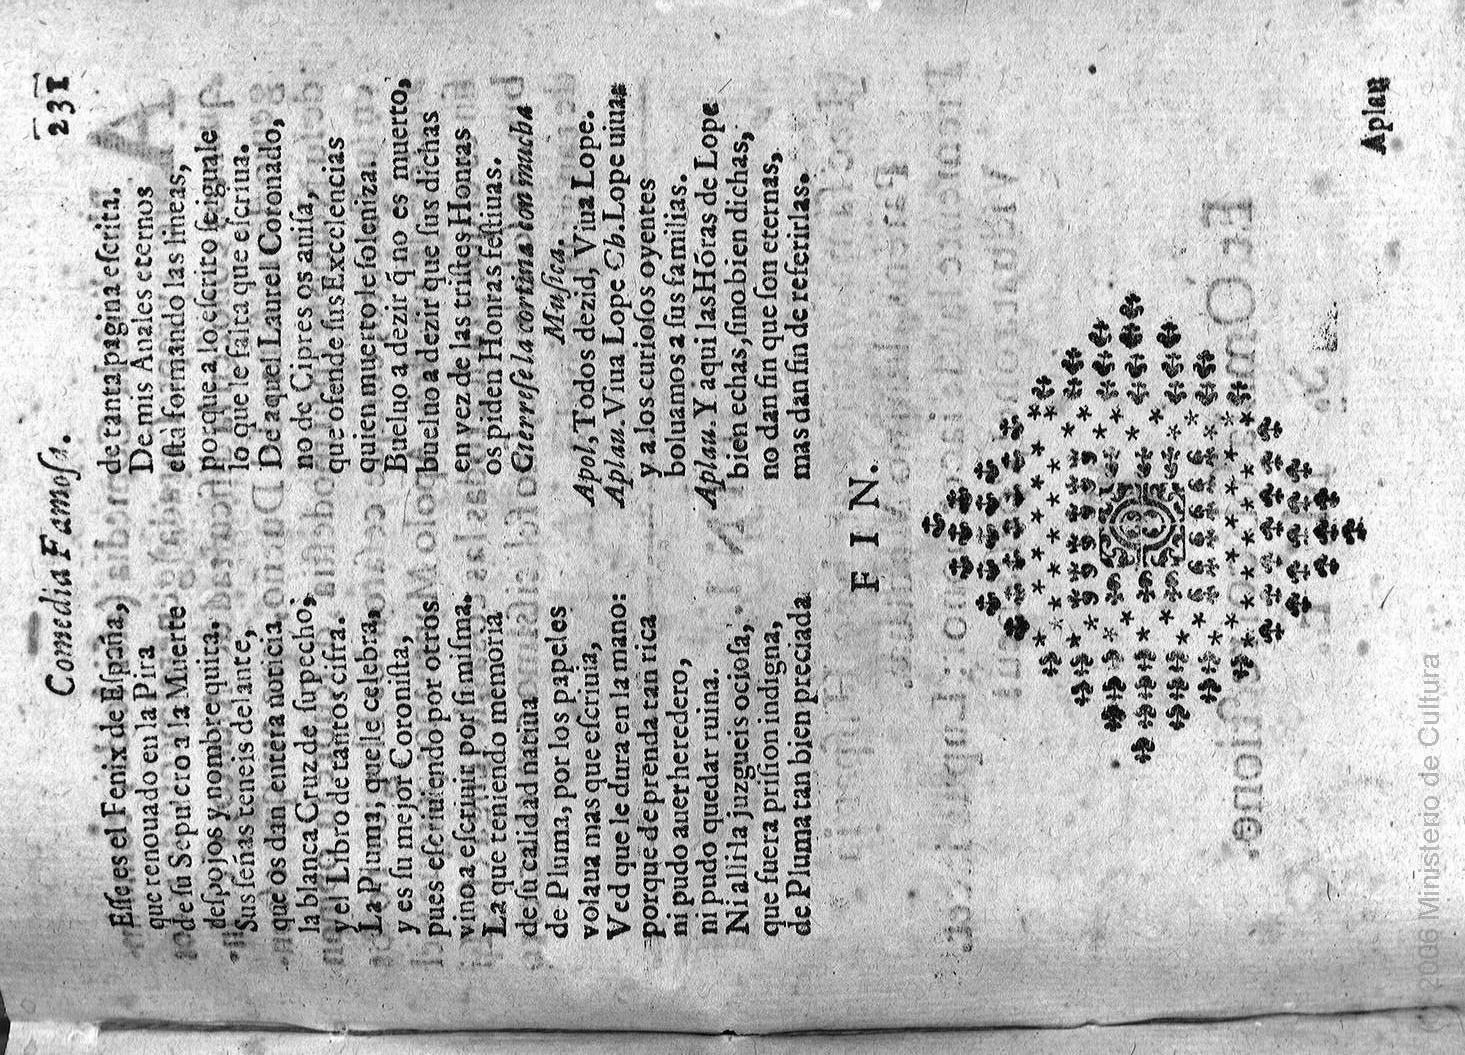 Comedia Famosa.
231
Esse es el Fenix de España,
que renouado en la Pira
de su Sepulcro a la Muerte
despojos y nombre quita,
Sus señas teneis delante,
que os dan entera noticia,
la blanca Cruz de su pecho,
y el Libro de tantos cifra.
La Pluma, que le celebra,
y es su mejor Coronista,
pues escriuiendo por otros
vino a escriuir por si misma.
La que teniendo memoria
de su calidad natiua
de Pluma, por los papeles
volaua mas que escriuia,
Ved que le dura en la mano:
porque de prenda tan rica
ni pudo auer heredero,
ni pudo quedar ruina.
Ni alli la juzgueis ociosa,
que fuera prision indigna,
de Pluma tan bien preciada
de tanta pagina escrita.
De mis Anales eternos
està formando las lineas,
porque a lo escrito se iguale
lo que le falta que escriua.
De aquel Laurel Coronado,
no de Cipres os auisa,
que ofende sus Excelencias
quien muerto le soleniza.
Bueluo a dezir q̃ no es muerto,
bueluo a dezir que sus dichas
en vez de las tristes Honras
os piden Honras festiuas.
Cierrese la cortina con mucha
Musica.
Apol, Todos dezid, Viua Lope.
Aplau. Viua Lope Ch. Lope uiua:
y a los curiosos oyentes
boluamos a sus familias.
Aplau. Y aqui las Hóras de Lope
bien echas, sino bien dichas,
no dan fin que son eternas,
mas dan fin de referirlas.
F I N.
Aplau
© 2006 Ministerio de Cultura